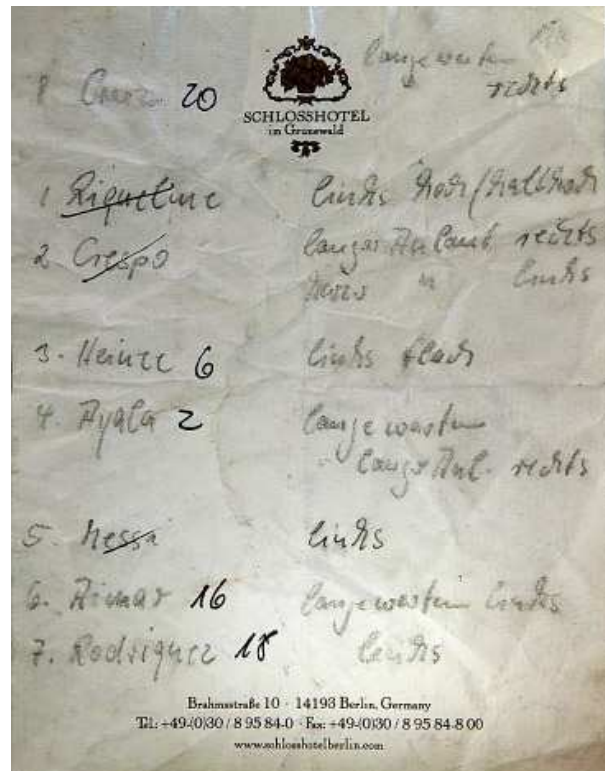 lange warten
8 Cruz 20 rechts
SCHLOSSHOTEL
im Grunewald
1 Riquelme links hoch/halbhoch
2 Crespo langer Anlauf rechts
kurz " links
3. Heinze 6 links flach
4. Ayala 2 lange warten
langer Anl. rechts
5. Messi links
6. Aimar 16 lange warten links
7. Rodriguez 18 links
Brahmsstraße 10 · 14193 Berlin, Germany
Tel: +49-(0)30 / 8 95 84-0 · Fax: +49-(0)30 / 8 95 84-8 00
www.schlosshotelberlin.com